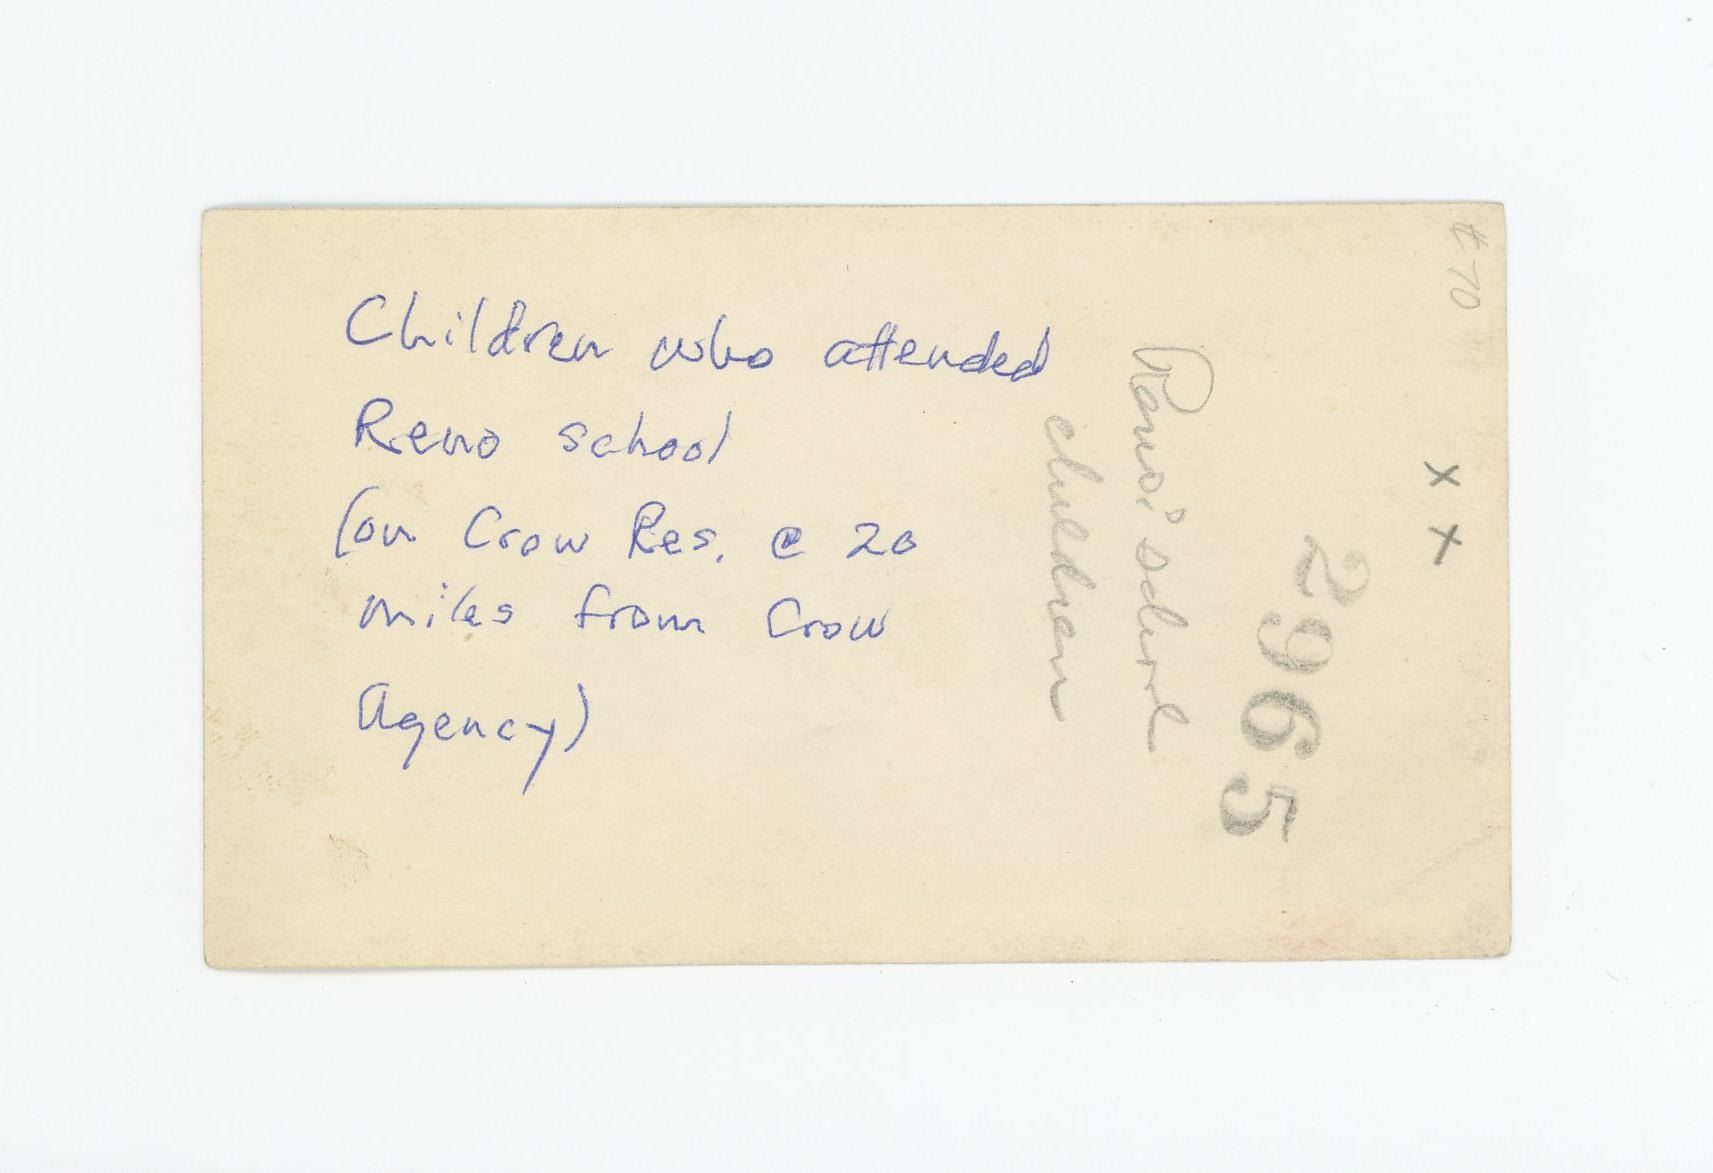 Children who attended
Reno school
(on Crow Res. @ 20
miles from Crow
Agency)
school
children
2965
x x
#70